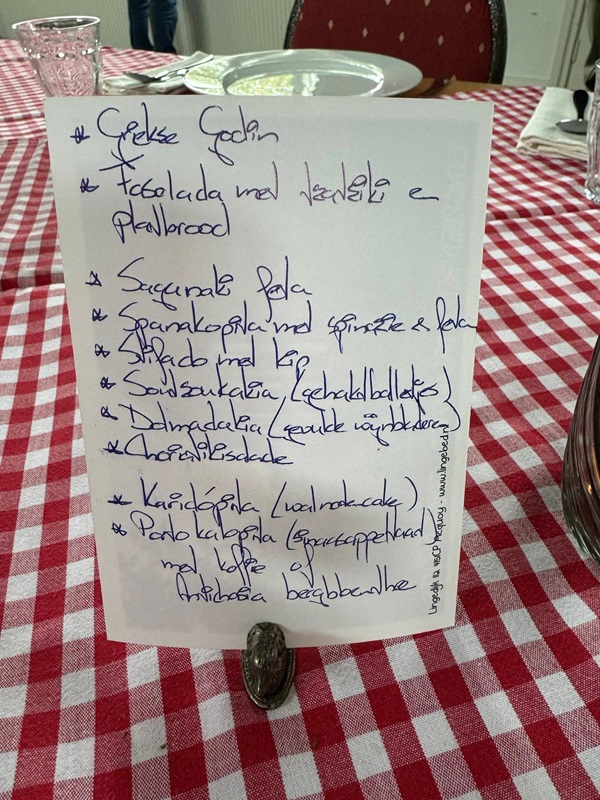 * Griekse Godin
x
* Fasolada met dzadziki e
platbrood
* Saganaki feta
* Spanakopita met spinazie & feta
* Stifado met kip
* Soutsoukakia (gehaktballetjes)
* Dolmadakia (gevulde wijnbladeren)
* Choriatikisalade
* Karidópita (walnotencake)
* Portokalopita (sinaasappeltaart)
met koffie of
bergbloemthee
Lingedijk 12 4153CP Acquoy - www.lingebed.nl